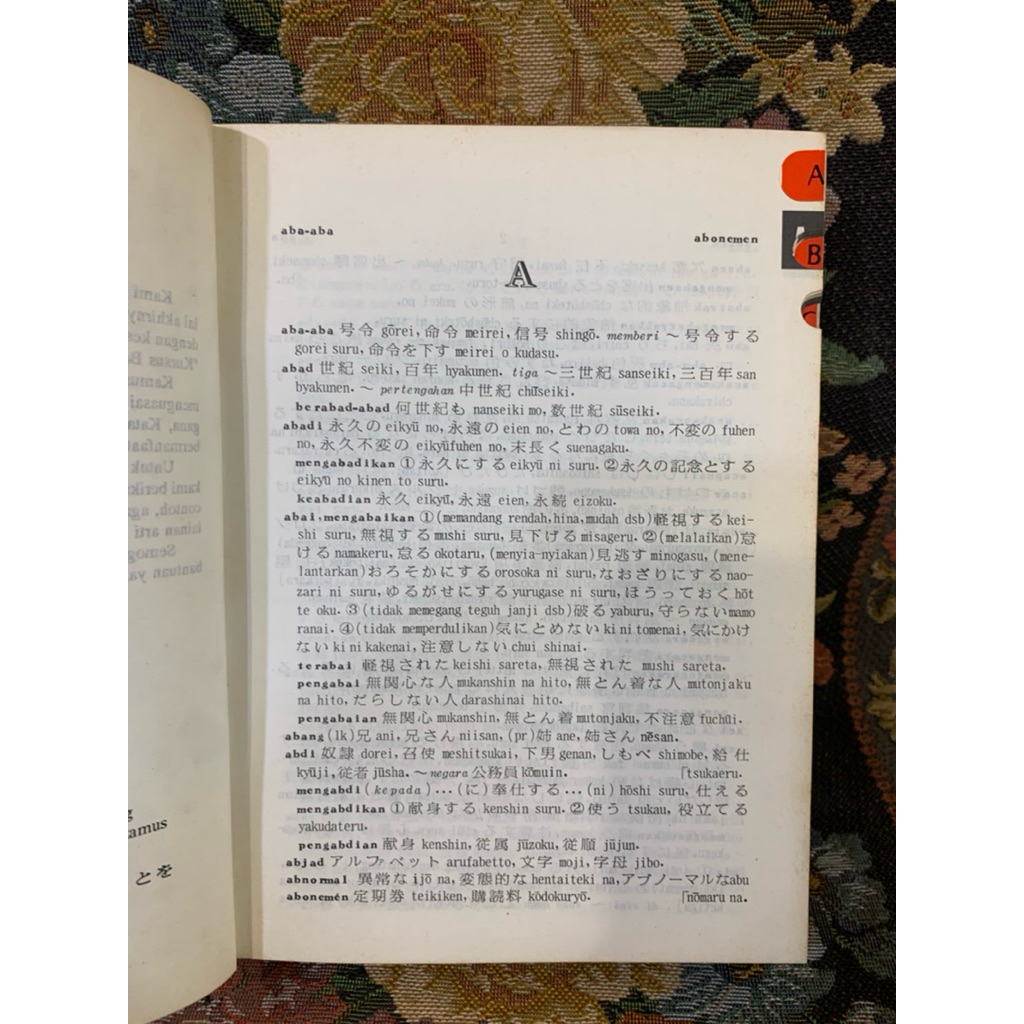 amus
とを
A
B
aba-aba
abonemen
A
aba-aba 号令 gōrei, 命令 meirei, 信号 shingō. memberi ~ 号令する
gorei suru, 命令を下す meirei o kudasu.
abad 世紀 seiki, 百年 hyakunen. tiga ~ 三世紀 sanseiki, 三百年 san
byakunen. ~ pertengahan 中世紀 chūseiki.
berabad-abad 何世紀も nanseiki mo, 数世紀 sūseiki.
abadi 永久の eikyū no, 永遠の eien no, とわの towa no, 不変の fuhen
no, 永久不変の eikyūfuhen no, 末長く suenagaku.
mengabadikan ①永久にする eikyū ni suru. ②永久の記念とする
eikyū no kinen to suru.
keabadian 永久 eikyū, 永遠 eien, 永続 eizoku.
abai, mengabaikan ①(memandang rendah, hina, mudah dsb)軽視する kei-
shi suru, 無視する mushi suru, 見下げる misageru. ②(melalaikan)怠
ける namakeru, 怠る okotaru, (menyia-nyiakan)見逃す minogasu, (mene-
lantarkan)おろそかにする orosoka ni suru, なおざりにする nao-
zari ni suru, ゆるがせにする yurugase ni suru, ほうっておく hōt
te oku. ③(tidak memegang teguh janji dsb)破る yaburu, 守らない mamo
ranai. ④(tidak memperdulikan)気にとめない ki ni tomenai, 気にかけ
ない ki ni kakenai, 注意しない chui shinai.
terabai 軽視された keishi sareta, 無視された mushi sareta.
pengabai 無関心な人 mukanshin na hito, 無とん着な人 mutonjaku
na hito, だらしない人 darashinai hito.
pengabaian 無関心 mukanshin, 無とん着 mutonjaku, 不注意 fuchūi.
abang (lk)兄 ani, 兄さん niisan, (pr)姉 ane, 姉さん nēsan.
abdi 奴隷 dorei, 召使 meshitsukai, 下男 genan, しもべ shimobe, 給仕
kyūji, 従者 jūsha. ~ negara 公務員 kōmuin. 「tsukaeru.
mengabdi (kepada)...(に)奉仕する...(ni) hōshi suru, 仕える
mengabdikan ①献身する kenshin suru. ②使う tsukau, 役立てる
yakudateru.
pengabdian 献身 kenshin, 従属 jūzoku, 従順 jūjun.
abjad アルファベット arufabetto, 文字 moji, 字母 jibo.
abnormal 異常な ijō na, 変態的な hentaiteki na, アブノーマルな abu
abonemén 定期券 teikiken, 購読料 kōdokuryō. 「nōmaru na.